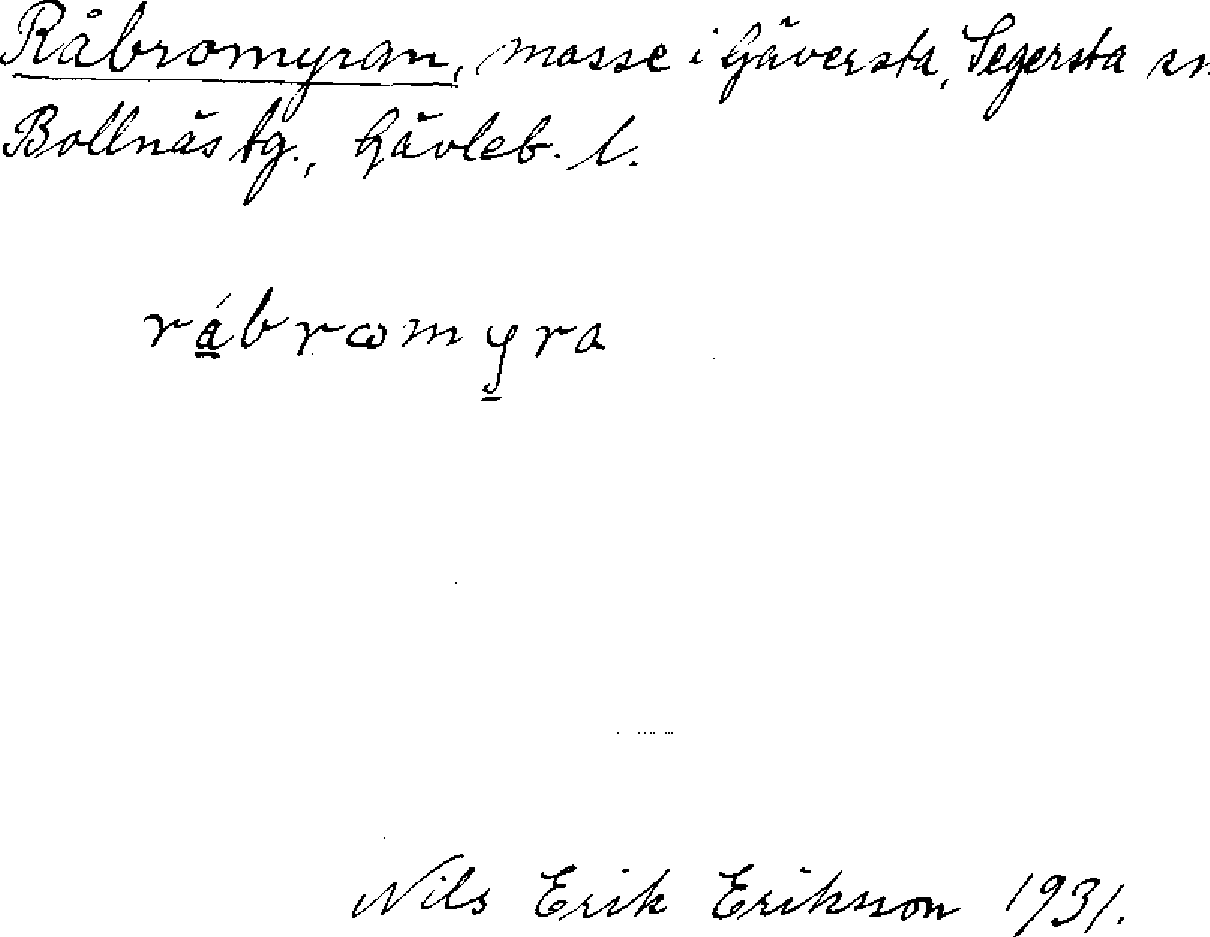 Råbromyran, mosse i Gäversta, Segersta sn.
Bollnäs tg., Gävleb. l.
rábrωmyra
Nils Erik Eriksson 1931.